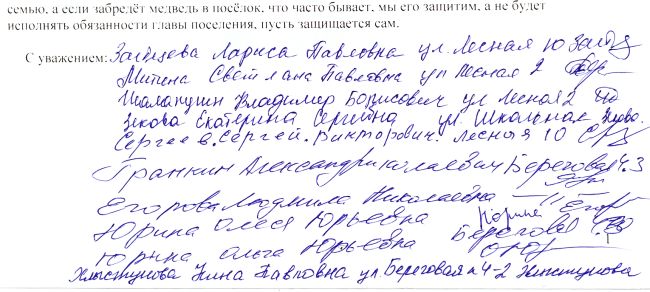 семью, а если забредёт медведь в посёлок, что часто бывает, мы его защитим, а не будет
исполнять обязанности главы поселения, пусть защищается сам.
С уважением: Зайцева Лариса Павловна ул. Лесная 10
Митина Светлана Павловна ул Лесная 2
Шалапугин Владимир Борисович ул Лесная 2
Зекова Екатерина Сергеевна ул Школьная
Сергеев. Сергей. Викторович. Лесная 10
Гранкин Александр Николаевич Береговая 4.3
Егорова Людмила Николаевна —"—
Юрина Олеся Юрьевна
Юрина Ольга Юрьевна Береговая
Хлыстунова Нина Павловна ул Береговая 4-2 Хлыстунова